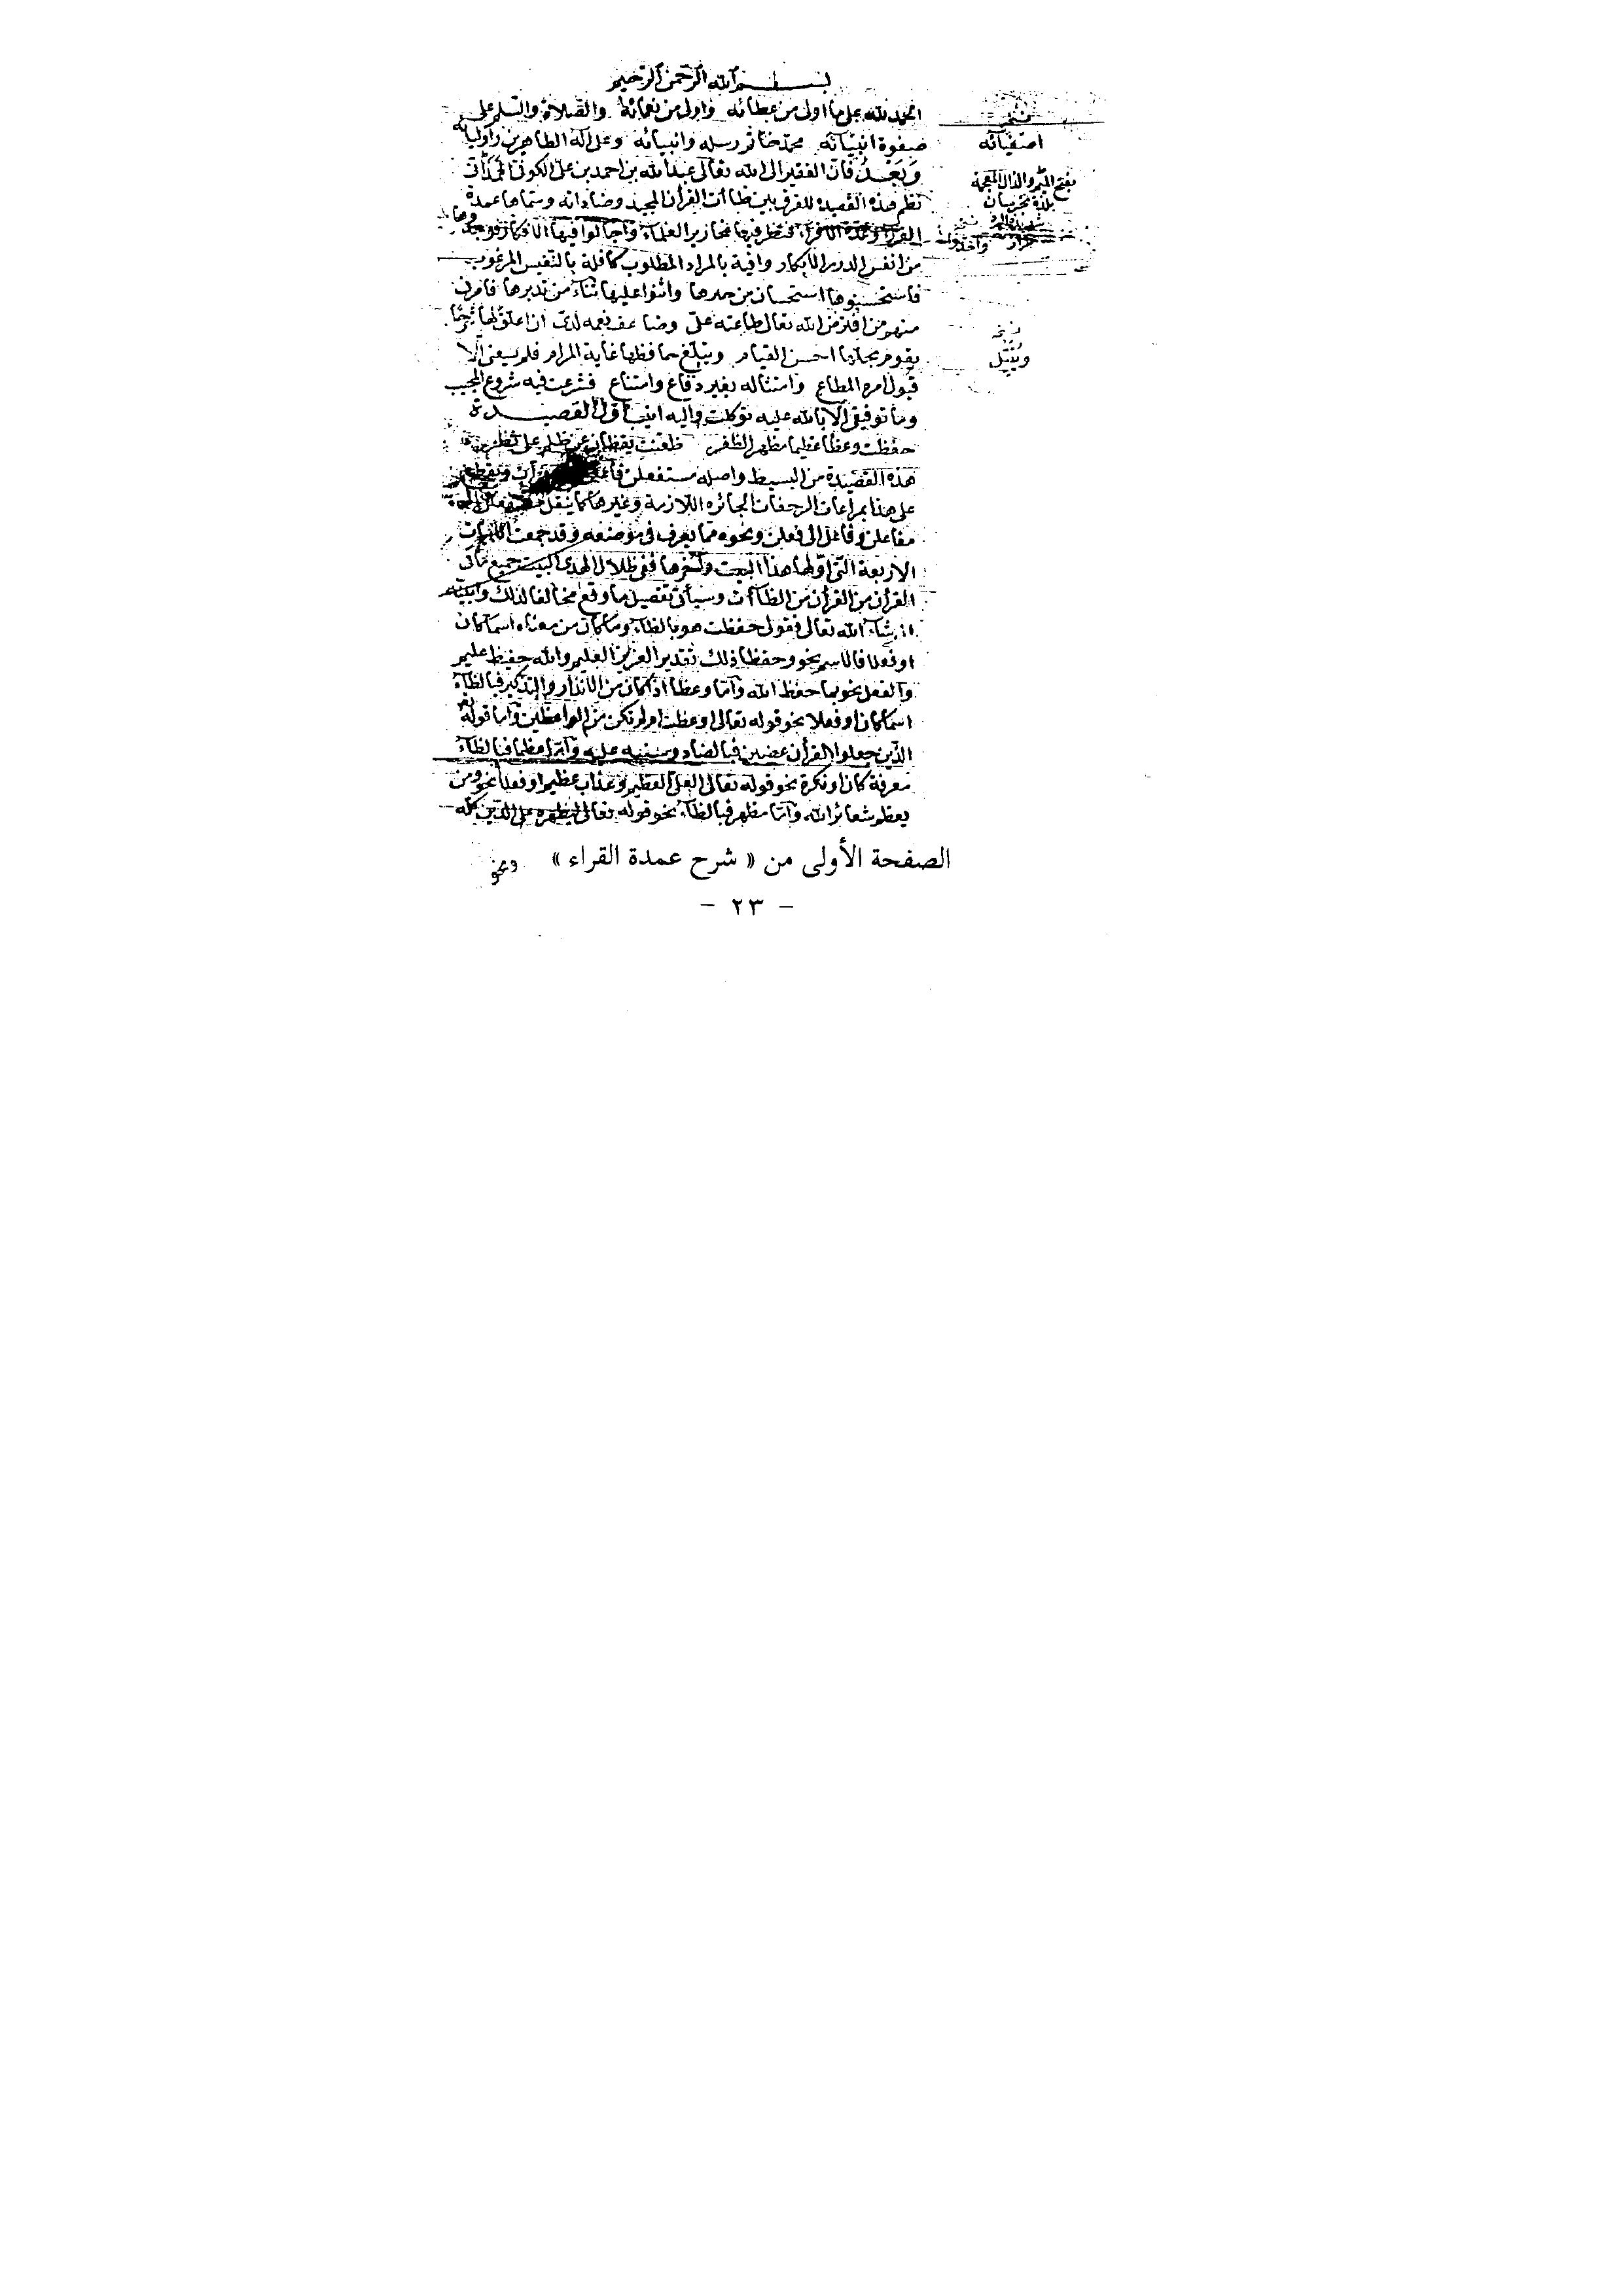 بسم الله الرحمن الرحيم
الحمد لله على ما اولى من عطائه واولى من نعمائه والصلاة والسلم على
صفوة انبيائه محمد خاتم رسله وانبيائه وعلى آله الطاهرين واوليائه
وبعد فان الفقير الى الله تعالى عبد الله بن احمد بن على الكوفى
نظم هذه القصيدة للفرق بين ظاآت القرأن المجيد وضاداته وسماها عمدة
القراء وعدة الاقراء فنظر فيها نحارير العلماء واجالوا فيها الافكار فوجدوها
من انفس الدرر الابكار وافية بالمراد المطلوب كافلة بالنفيس المرغوب
فاستحسنوها استحسان من واثنوا عليها ثناء من تدبرها فامرنى
منهم من افترض الله تعالى طاعته على وضاعف نعمه لدى ان اعلق لها شرحا
يقوم بحلها احسن القيام ويبلغ حافظها غاية المرام فلم يسعنى الا
قبول امره المطاع وامتثاله بغير دفاع وامتناع فشرعت فيه شروع المجيب
وما توفيقى الا بالله عليه توكلت واليه انيب اول القصيدة
حفظت وعظا عظيما مظهر الظفر ظعنت يقظان
هذه القصيدة من البسيط واصله مستفعلن
على هذا بمراعات الزحفات الجائزه اللازمة وغيرها كما ينقل
مفاعلن وفاعل الى فعلن ونحوه مما يعرف فى موضعه وقد جمعت الابيات
الاربعة التى اولها هذا البيت واخرها ففى ظلال الهدى البيت جميع مافى
القرأن من القرأن من الظاآت وسيأتى تفصيل ما وقع مخالفا لذلك وابينه
ان شاء الله تعالى فقولى حفظت هو بالظاء وما كان من معناه اسما كان
او فعلا فالاسم نحو وحفظا ذلك تقدير العزيز العليم والله حفيظ عليم
والفعل نحو بما حفظ الله واما وعظا اذا كان من الانذار والتذكير فبالظاء
اسما كان او فعلا نحو قوله تعالى اوعظت ام لم تكن من الواعظين واما قوله
الذين جعلوا القرأن عضين فبالضاد وسننبه عليه واما عظيما فبالظاء
معرفة كان او نكرة نحو قوله تعالى العلى العظيم وعذاب عظيم او فعلا نحو ومن
يعظم شعائر الله واما مظهر فبالظاء نحو قوله تعالى ليظهره على الدين كله
ونحو
اصفيائه
بفتح الميم والذال المعجمة
ويقبل
الصفحة الأولى من « شرح عمدة القراء »
- ٢٣ -